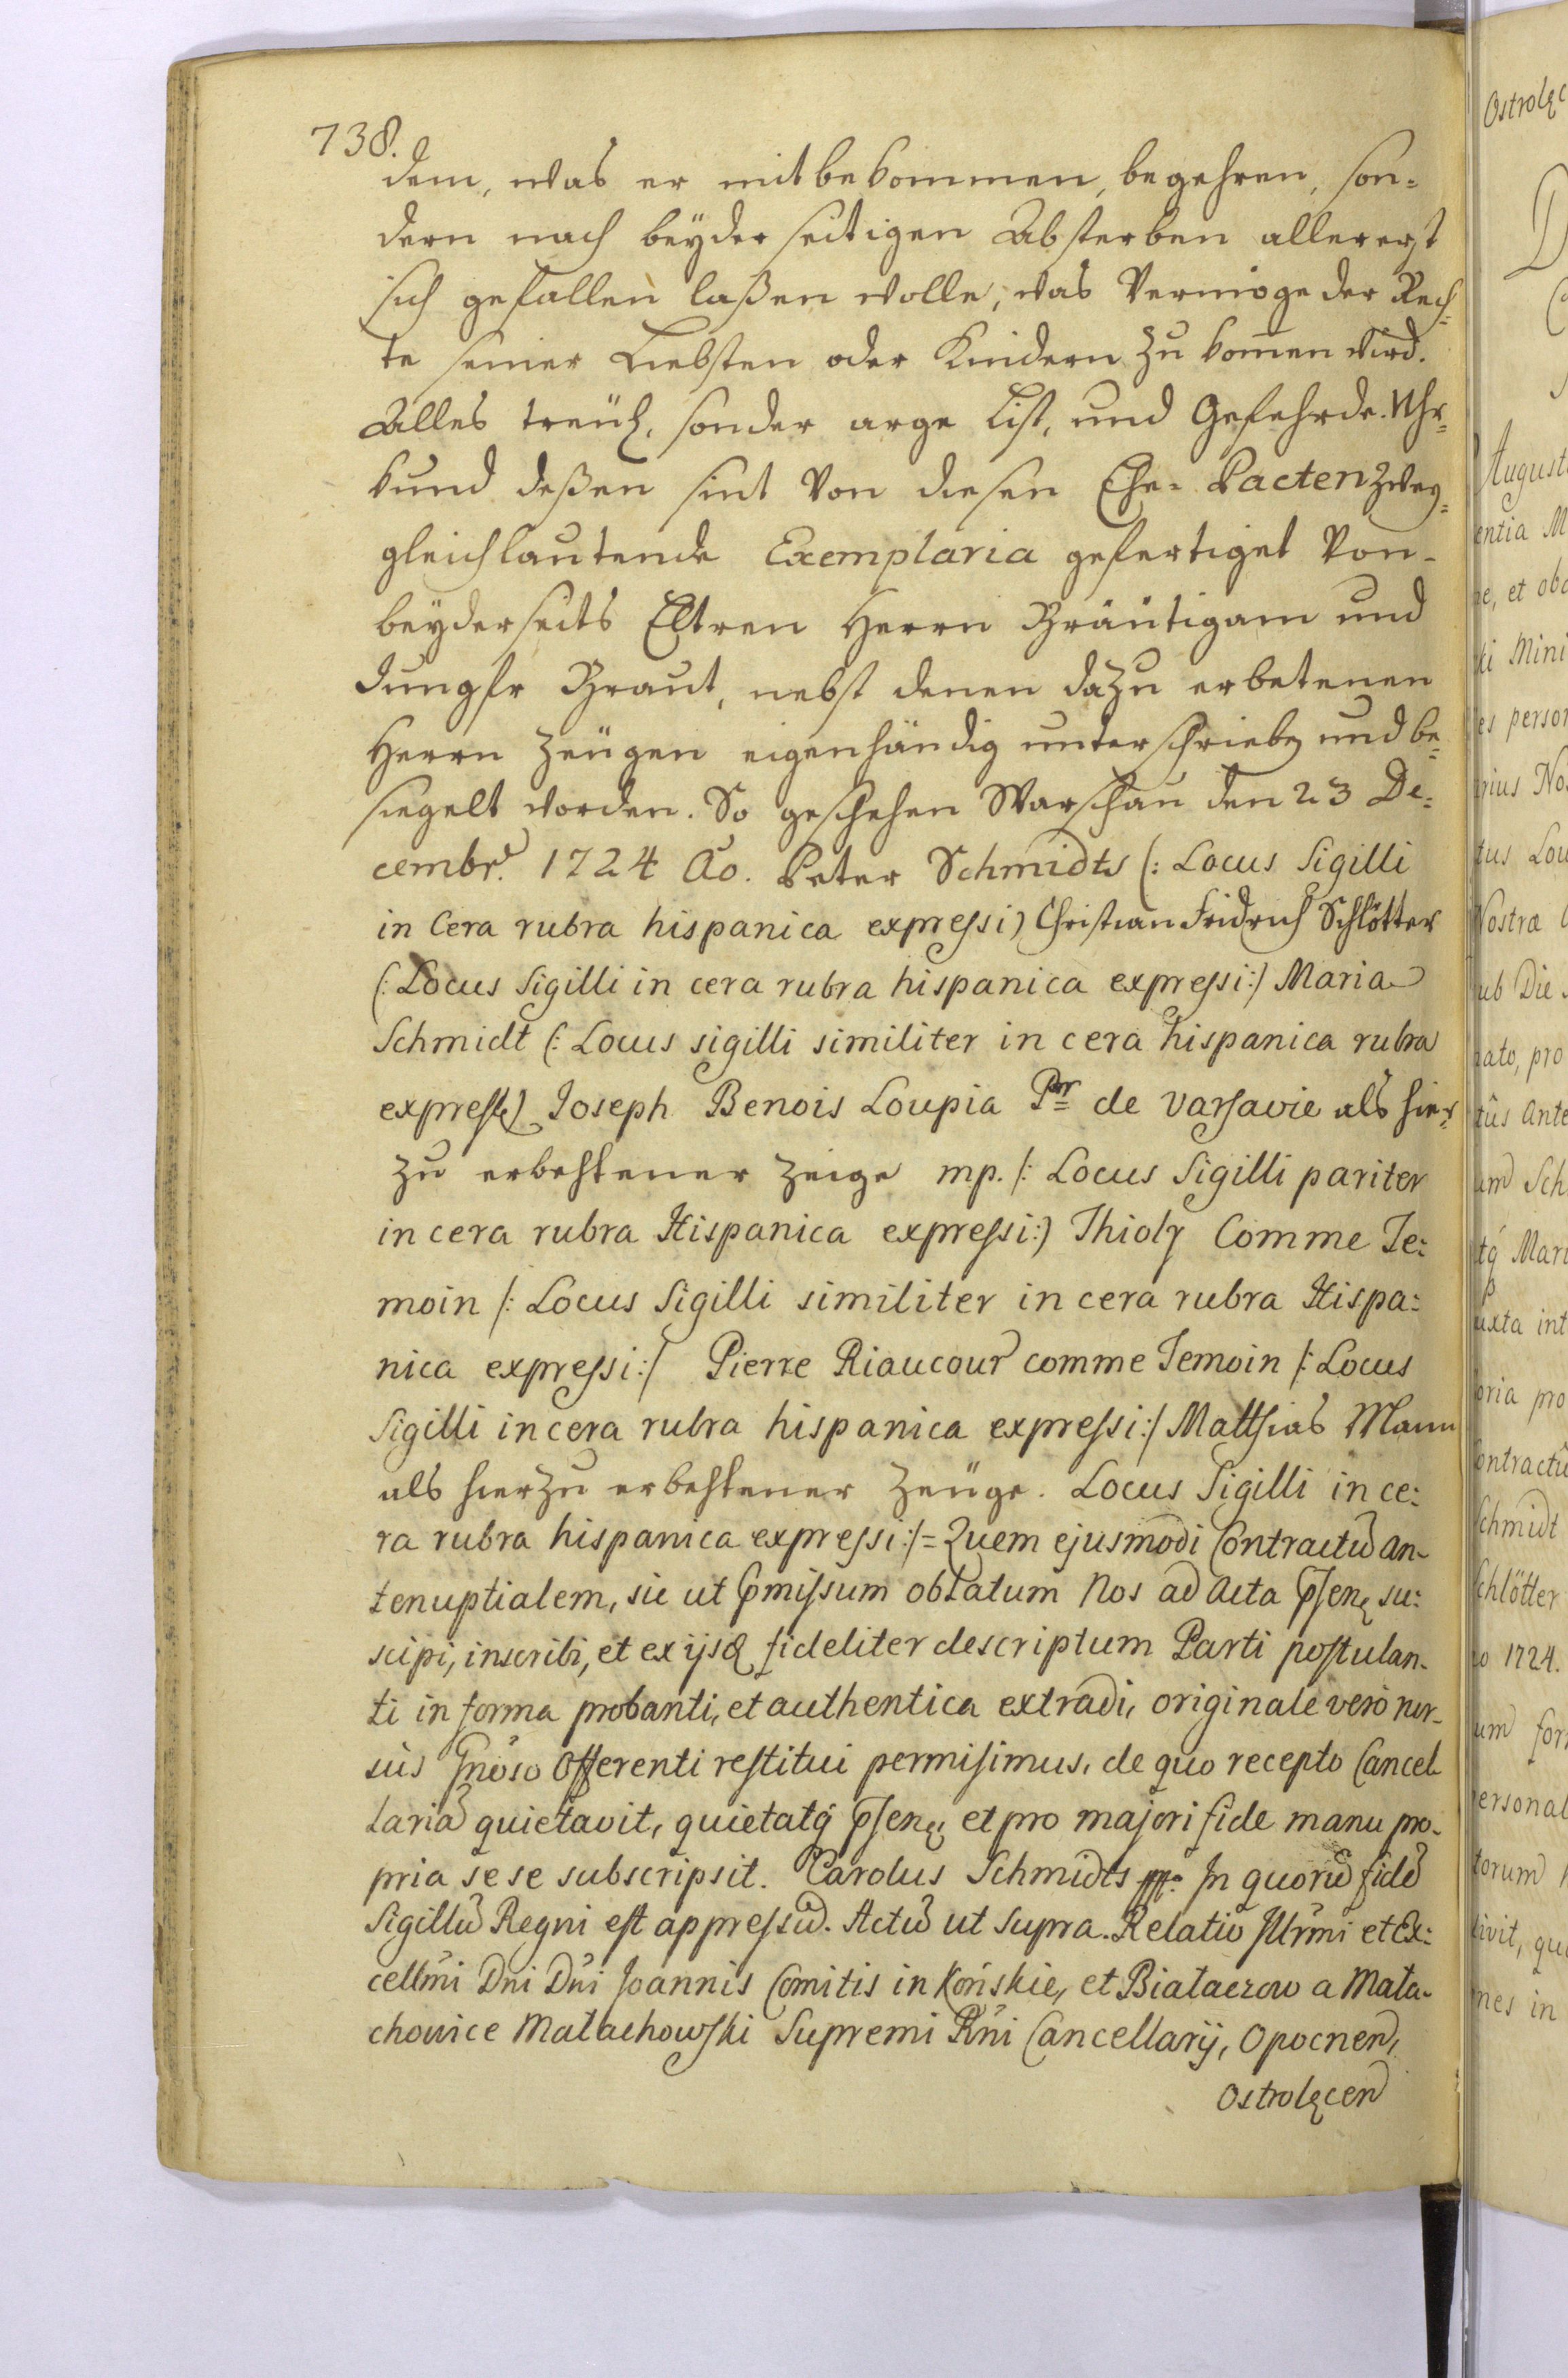 738.
dem, was er mitbekommen, begehren, son=
dern nach beyderseitigen Absterben allererst
sich gefallen laßen wolle, was Vermöge der Rech=
te seiner Liebsten oder Kindern zu kom̄en wird.
Alles treül. sonder arge List, und Gefehrde. Uhr=
kund deßen sint Von diesen Ehe= Pacten zwey=
gleichlautende Exemplaria gefertiget Von-
beyderseits Eltren Herrn Bräutigam und
Jungfr Braut, nebst denen dazu erbetenen
Herrn Zeügen eigenhändig unterschrieben und be=
siegelt worden. So geschehen Warschau den 23 De=
cembr. 1724 Ao. Peter Schmidts (: Locus Sigilli
in Cera rubra hispanica expressi) Christian Fridrich Schlötter
(: Locus Sigilli in cera rubra hispanica expressi:) Maria
Schmidt (: Locus sigilli similiter in cera hispanica rubra
expressi) Joseph Benois Loupia Pr de Varsavie als hier=
zu erbehtener Zeige mp. /: Locus Sigilli pariter
in cera rubra Hispanica expressi:) Thioly Comme Te=
moin /: Locus Sigilli similiter in cera rubra Hispa=
nica expressi:/ Pierre Riaucour comme Temoin /: Locus
Sigilli in cera rubra hispanica expressi:/ Matthias Mann
als hierzu erbehtener Zeüge. Locus Sigilli in ce=
ra rubra hispanica expressi:/= Quem ejusmodi Contractū an-
tenuptialem, sic ut p̄missum oblatum Nos ad Acta p̄sen. su=
scipi, inscribi, et ex ijsq fideliter descriptum Parti postulan-
ti in forma probanti, et authentica extradi, originale verò rur-
sùs Gnoso Offerenti restitui permisimus, de quo recepto Cancel-
lariā quietavit, quietatq́ p̄sen. et pro majori fide manu pro-
pria sese subscripsit. Carolus Schmidts mp. In quorū fidē
Sigillū Regni est appressū. Actū ut supra. Relatio Illrmi et Ex=
cellmi Dni Dni Joannis Comitis in Końskie, et Białaczow a Mała-
chowice Małachowski Supremi Rni Cancellarij, Opocnen,
Ostrolęcen